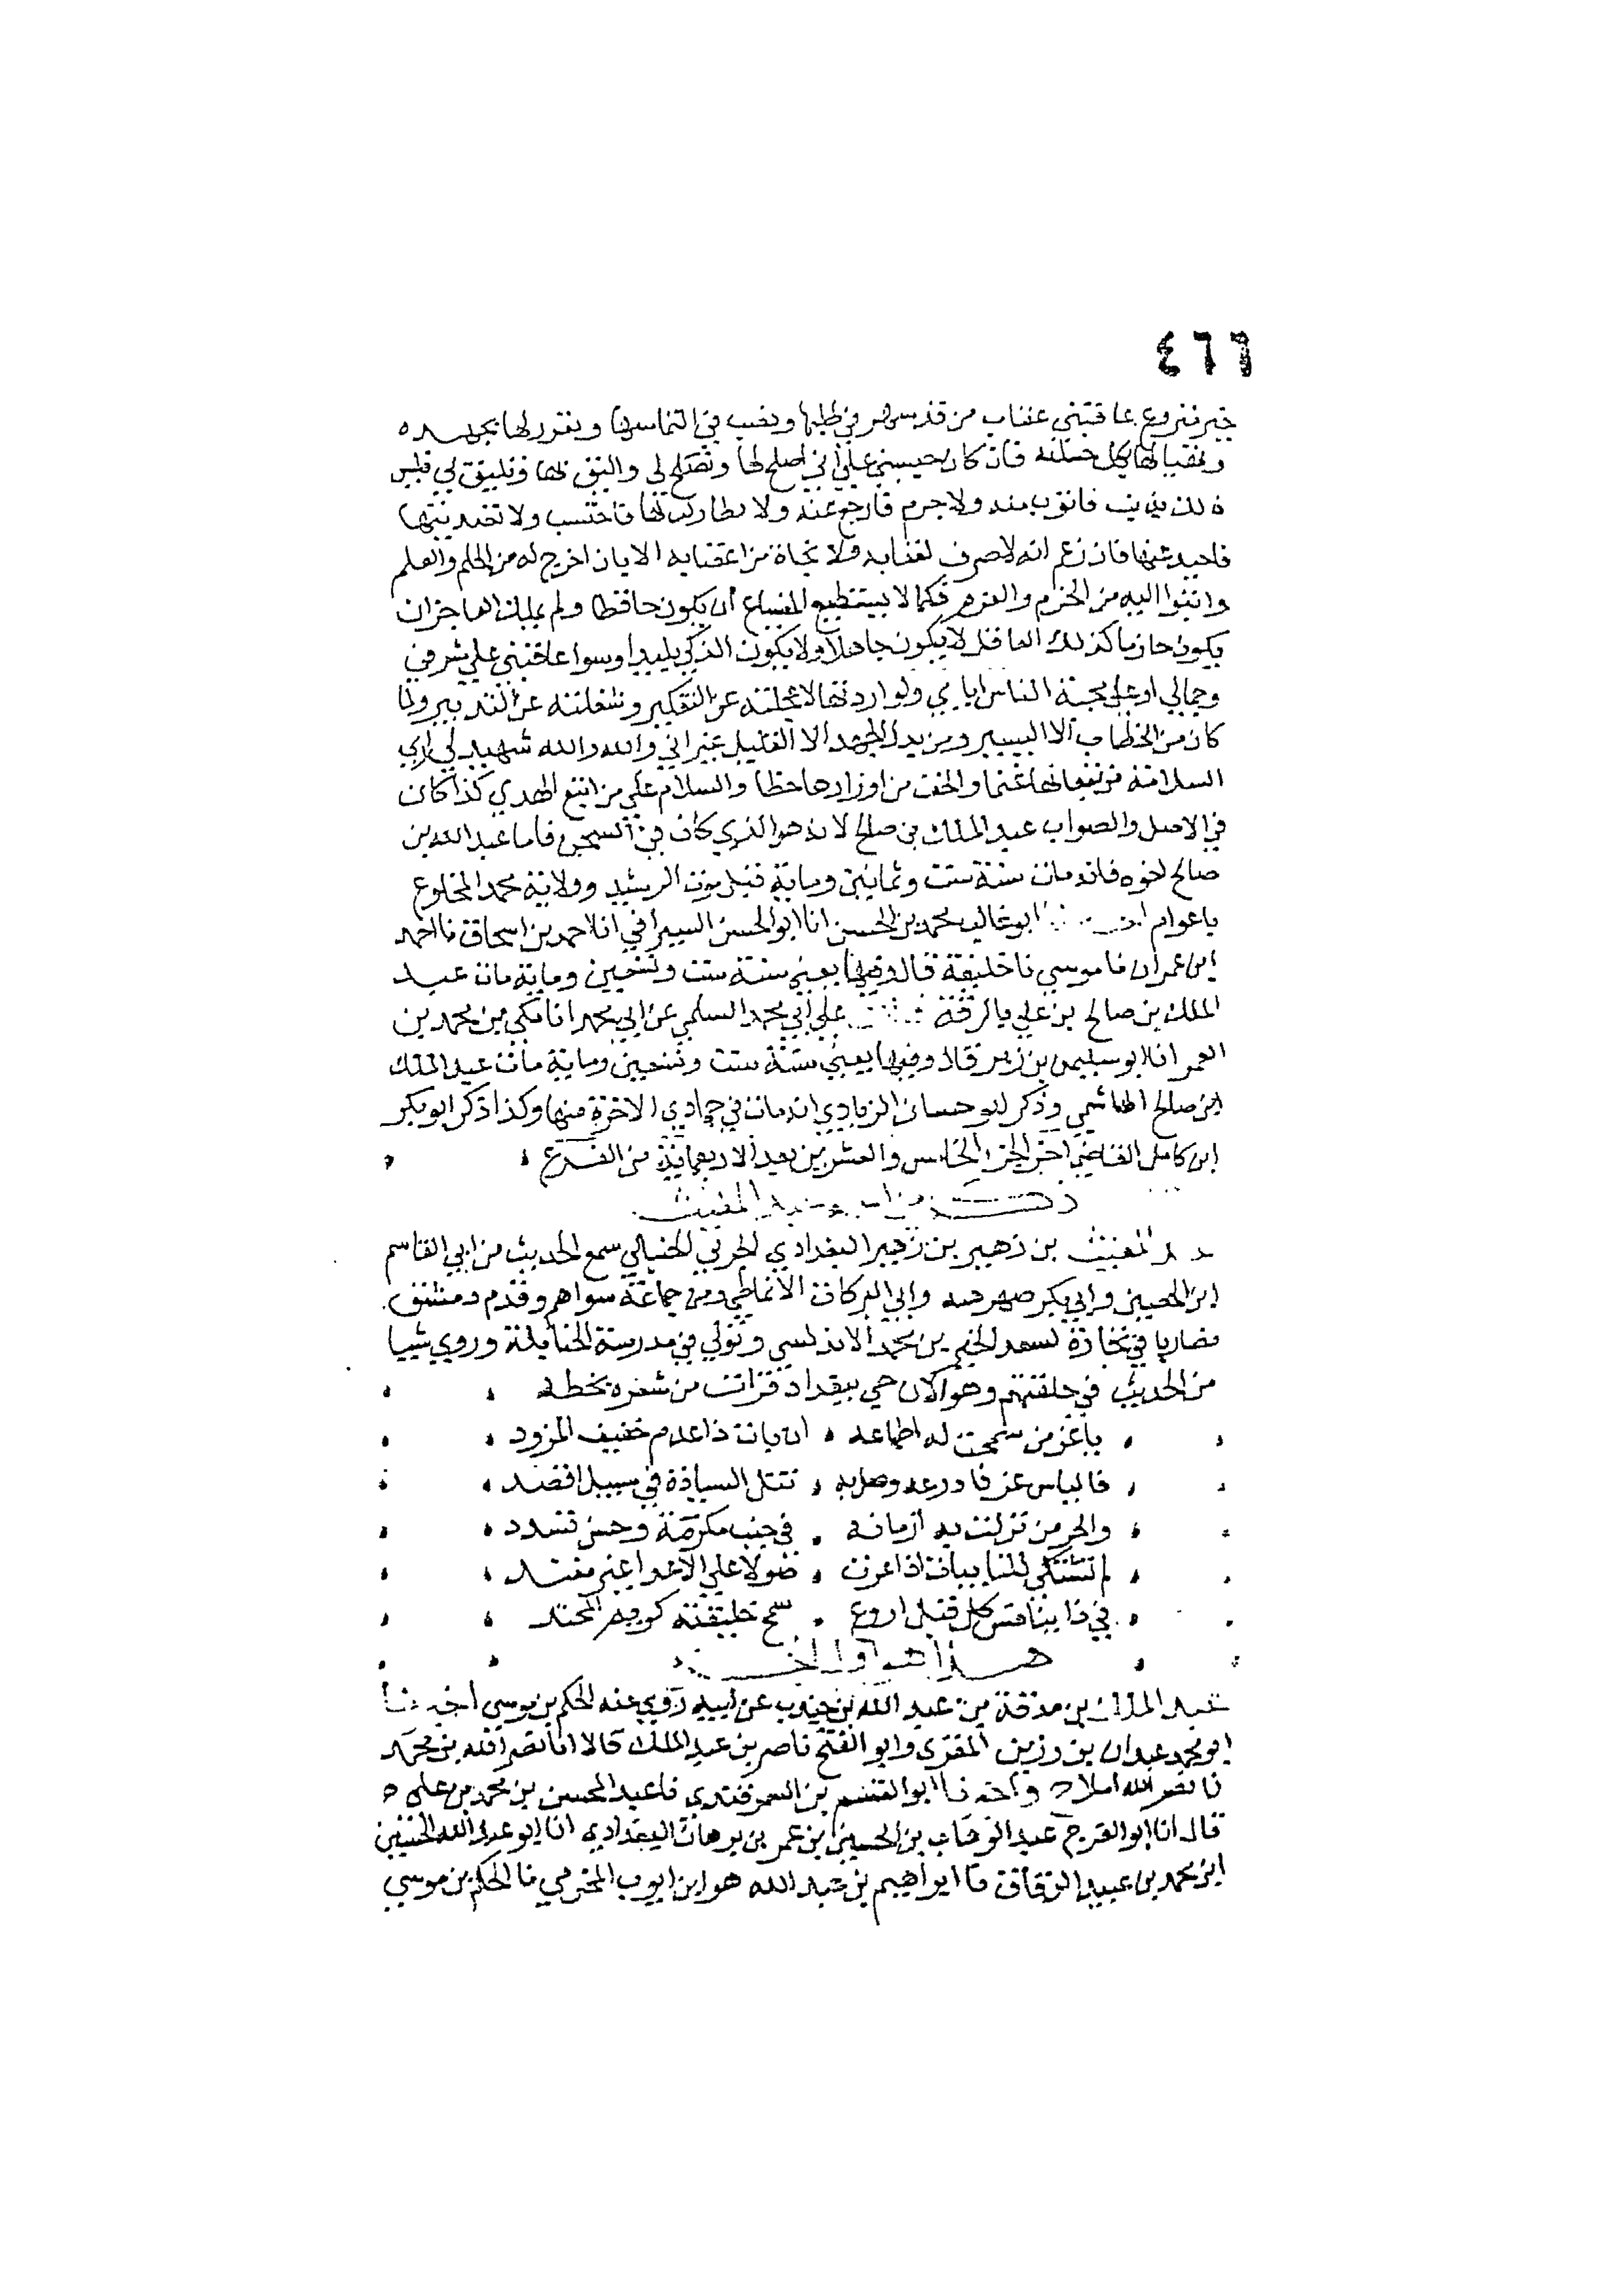 ٤٦٦
عاقبتني عقاب من قد سهر في طلبها ونصب في التماسها وتقرر لها بجهده
لها بكل حيلة فان كان حبسني علي اني اصلح لها وتصلح لي واليق بها وتليق لي فليس
ذلك بذنب فاتوب منه ولا جرم فارجع عنه ولا تطاولت لها فاحتسب ولا تصديتها
فاحيد عنها فان زعم انه لا صرف لعقابه ولا نجاة من اعقابه الا بان اخرج له من الحلم والعلم
اليه من الحزم والعزم فكما لا يستطيع المضياع ان يكون حافظا ولم يملك العاجز ان
يكون حازما كذلك العاقل لا يكون جاهلا ولا يكون الذكي بليدا وسوا عاقبني علي شرفي
وجمالي او علي محبة الناس اياي ولو اردتها لاعجلته عن التفكير وشغلته عن التدبير ولما
كان من الخطاب الا اليسير ومن بذل الجهد الا القليل غير اني والله والله شهيد لي اري
السلامة من تبعاتها غنما والخف من اوزارها حظا والسلام علي من اتبع الهدي كذا كان
في الاصل والصواب عبد الملك بن صالح لانه هو الذي كان في السجن فاما عبد الله بن
صالح اخوه فانه مات سنة ست وثمانين وماية قبل موت الرشيد وولاية محمد المخلوع
باعوام ابو غالب محمد بن الحسن انا ابو الحسن السيرافي انا احمد بن اسحاق نا احمد
ابن عمران نا موسي نا خليفة قال وفيها يعني سنة ست وتسعين وماية مات عبد
الملك بن صالح بن علي بالرقة علي ابي محمد السلمي عن ابي محمد انا مكي بن محمد بن
الغمر انا ابو سليمن بن زبر قال وفيها يعني سنة ست وتسعين وماية مات عبد الملك
ابن صالح الهاشمي وذكر ابو حسان الزيادي انه مات في جمادي الاخرة منها وكذا ذكر ابو بكر
ابن كامل القاضي اخر الجزء الخامس والعشرين بعد الاربعماية من الفرع
ذكر من اسمه عبد المغيث
عبد المغيث بن زهير بن زهير البغدادي الحربي الحنبلي سمع الحديث من ابي القاسم
ابن الحصين وابي بكر صهر هبه وابي البركات الانماطي ومن جماعة سواهم وقدم دمشق
مضاربا في تجارة لسعد الخير بن محمد الاندلسي وتولي في مدرسة الحنابلة وروي شييا
من الحديث في حلقتهم وهو الان حي ببغداد قرات من شعره بخطه
يا عز من سمحت له اطماعه ، ان بات ذا عدم خفيف المزود
فالياس عز فادرعه وصل به ، تنل السيادة في سبيل اقصد
والحر من نزلت به ازمانه ، في جنب مكرمة وحسن تشدد
لم تشتكي للنايبات اذا عرت ، صولا علي الاعدا غير مفند
في ذا ينافس كل قيل اروع ، سمح خليقته كريم المحتد
هذا هو اول الجزء
عبد الملك بن مدقة بن عبد الله بن جندب عن ابيه روي عنه الحكم بن موسي اخبرنا
ابو محمد عبدان بن رزين المقرى وابو الفتح ناصر بن عبد الملك قالا انا نصر الله بن محمد
نا نصر الله املاء واخبرنا ابو القسم بن السمرقندي نا عبد المحسن بن محمد بن علي
قال انا ابو الفرج عبد الوهاب بن الحسين بن عمر بن برهان البغدادي انا ابو عبد الله الحسين
ابن محمد بن عبيد الدقاق نا ابراهيم بن عبد الله هو ابن ايوب المخرمي نا الحكم بن موسي